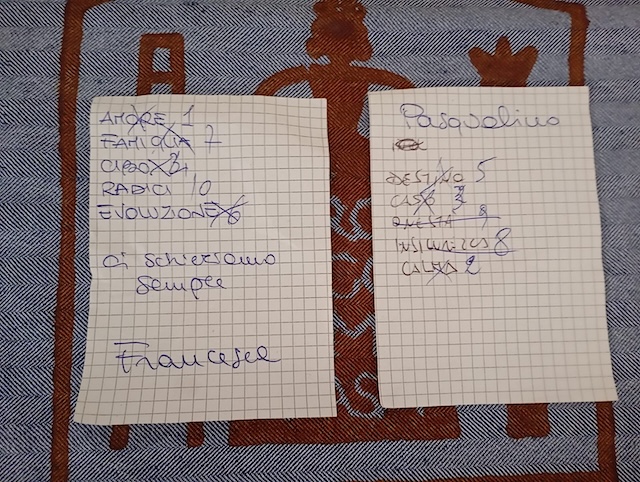 AMORE 1
FAMIGLIA 7
CIBO 4
RADICI 10
EVOLUZIONE 6
Ci schieriamo
sempre
Francesca
Pasqualino
DESTINO 5
CASO 3
ONESTÀ 9
8
CALMA 2